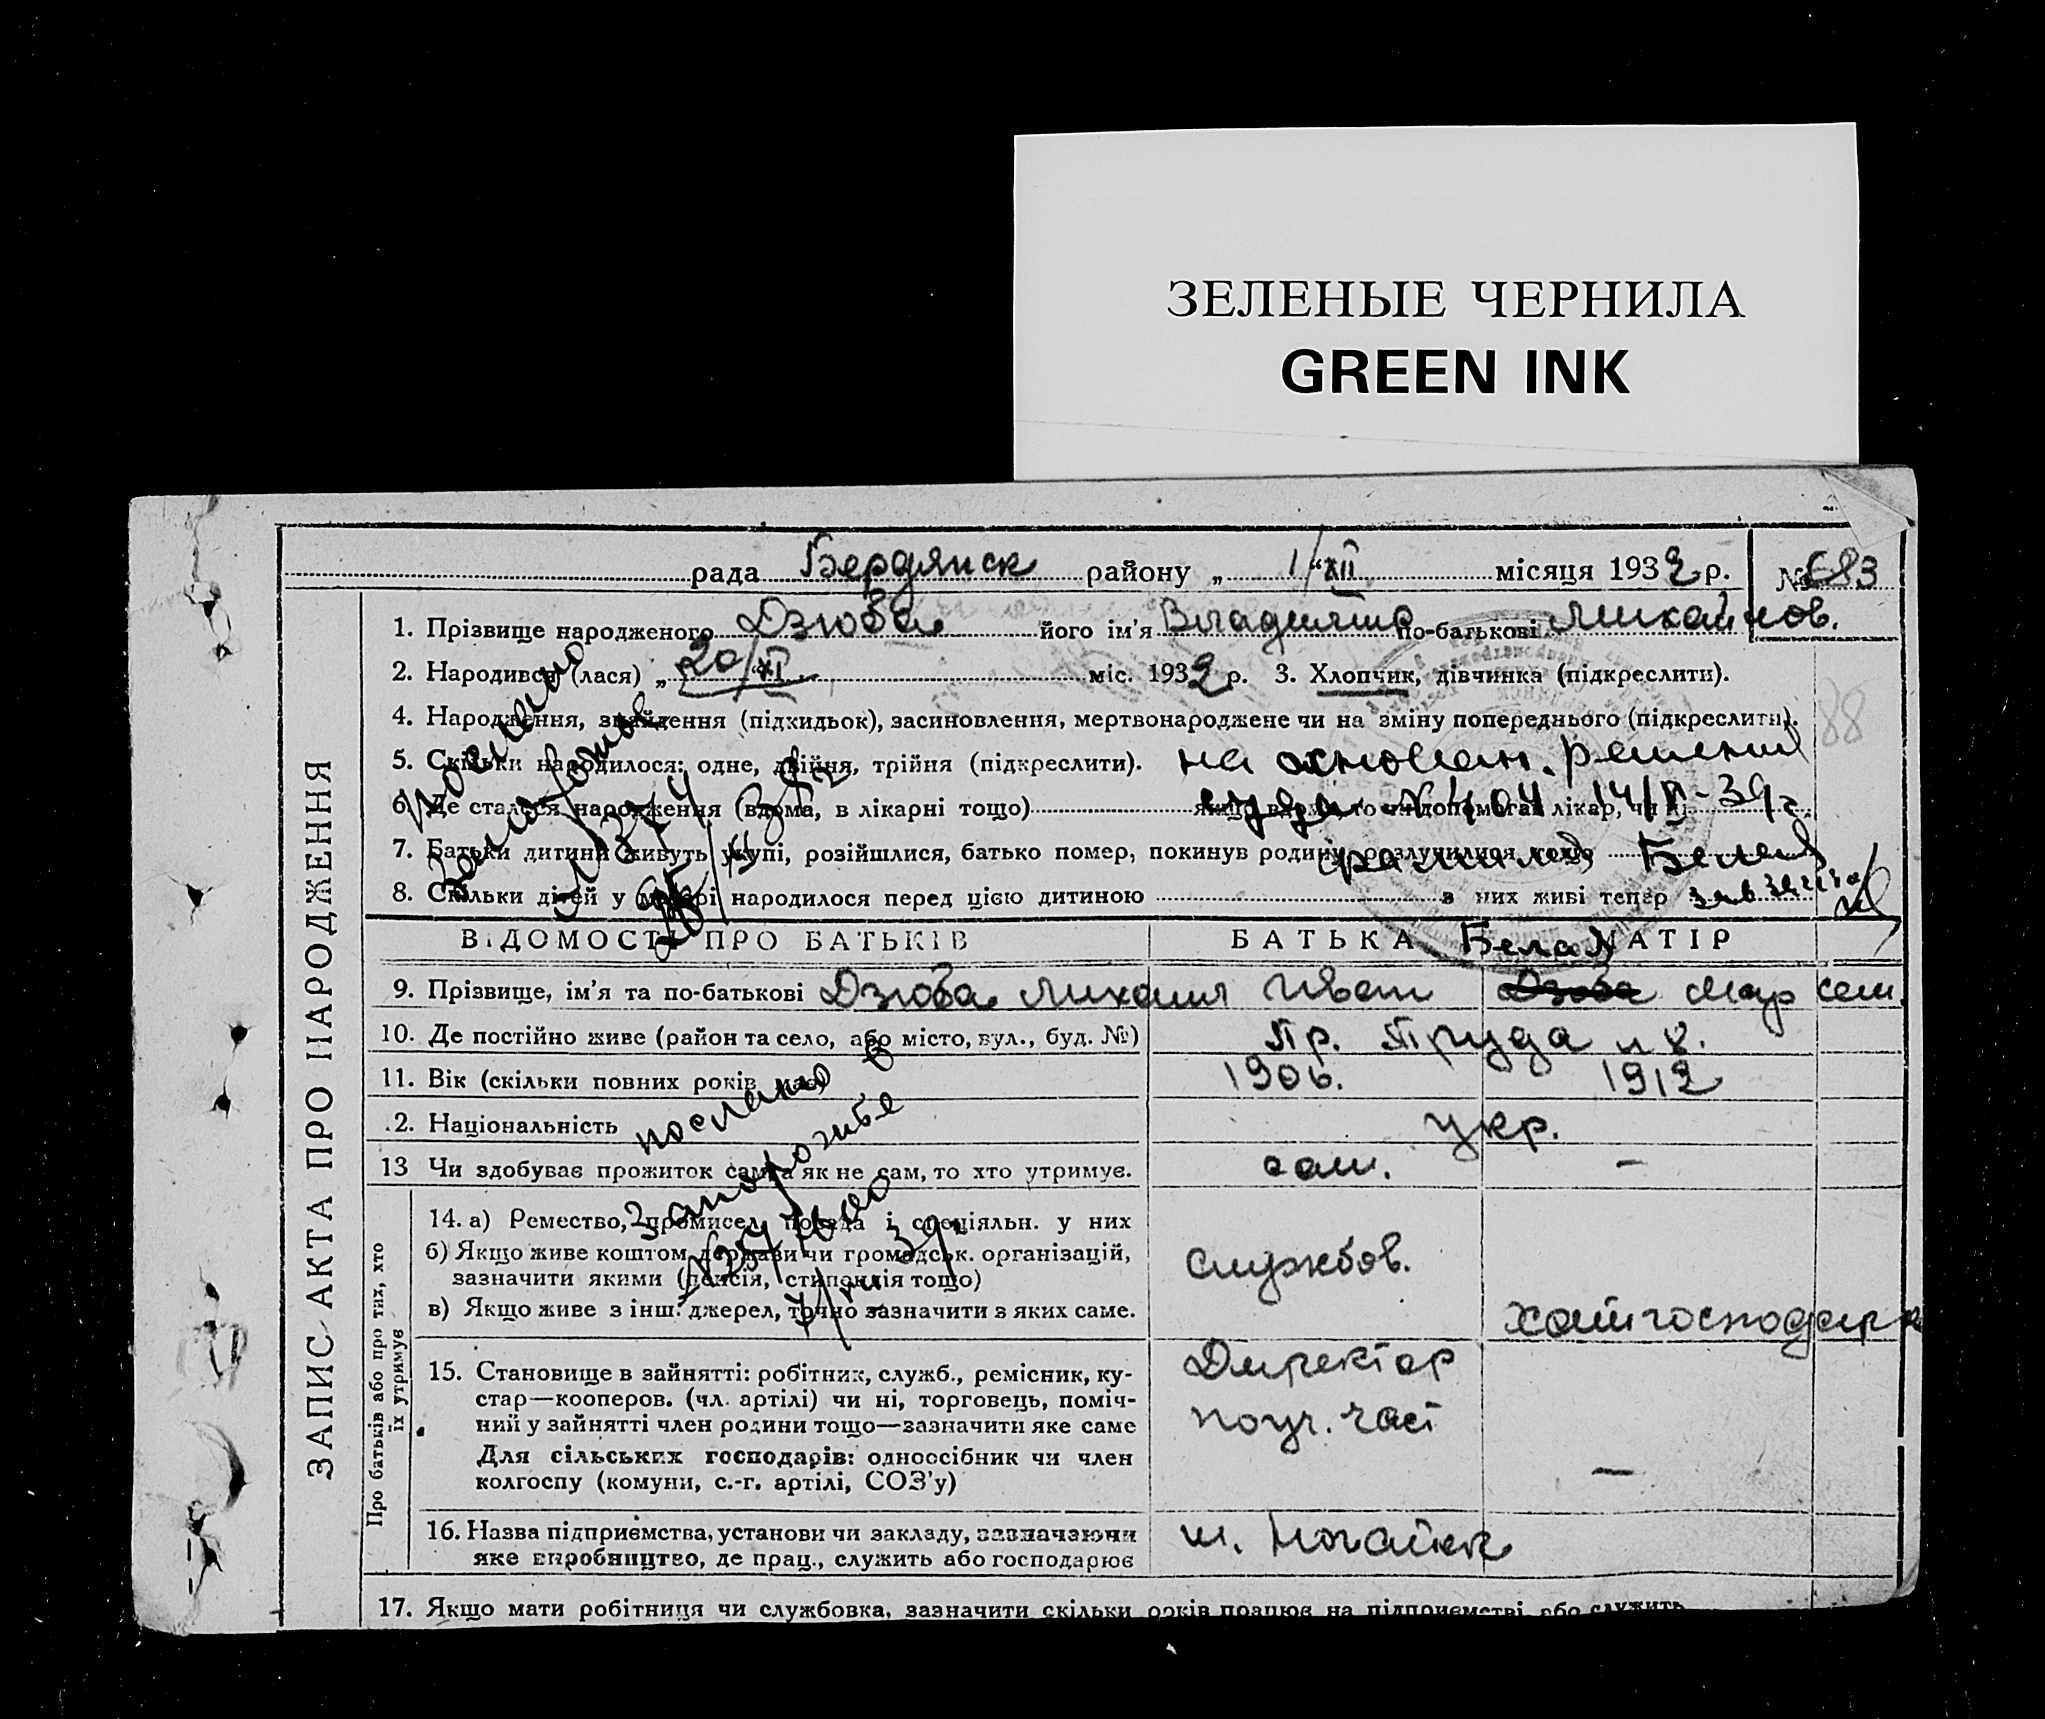 ЗЕЛЕНЫЕ ЧЕРНИЛА
GREEN INK
рада Бердянск району „ 1/XII " місяця 1932 р. № 683
ЗАПИС АКТА ПРО НАРОДЖЕННЯ
1. Прізвище народженого Дзюба його ім'я Владимир по-батькові Михайлов.
2. Народився (лася) „ 20/XI " міс. 1932 р. 3. Хлопчик, дівчинка (підкреслити).
4. Народження, знайдення (підкидьок), засиновлення, мертвонароджене чи на зміну попереднього (підкреслити).
5. Скільки народилося: одне, двійня, трійня (підкреслити). на основан. решения
6. Де сталося народження (вдома, в лікарні тощо) якщо вдома, то чи допомогав лікар, чи
суда № 404 14/ - 39 г.
7. Батьки дитини живуть укупі, розійшлися, батько помер, покинув родину, розлучилися тощо
фамилия Белый
8. Скільки дітей у матері народилося перед цією дитиною з них живі тепер
послано
№ 1374
ВІДОМОСТІ ПРО БАТЬКІВ БАТЬКА МАТІР
Белая
9. Прізвище, ім'я та по-батькові Дзюба Михаил Иван Дзюба Мар сем.
10. Де постійно живе (район та село, або місто, вул., буд. №) Пр. Труда № 8.
11. Вік (скільки повних років має) 1906. 1912
2. Національність укр.
13 Чи здобуває прожиток сам, а як не сам, то хто утримує. сам. —
послано в
Запорожье
Про батьків або про тих, хто їх утримує
14. а) Ремество, промисел, посада і спеціяльн. у них
б) Якщо живе коштом держави чи громадськ. організацій,
зазначити якими (пенсія, стипендія тощо)
службов.
в) Якщо живе з інш. джерел, точно зазначити з яких саме.
хатнгосподарк
15. Становище в зайнятті: робітник, служб., ремісник, ку-
стар—кооперов. (чл. артілі) чи ні, торговець, поміч-
ний у зайнятті член родини тощо—зазначити яке саме
Для сільських господарів: одноосібник чи член
колгоспу (комуни, с.-г. артілі, СОЗ'у)
Директор
част
—
16. Назва підприємства, установи чи закладу, зазначаючи
яке виробництво, де прац., служить або господарює
м. Ногайск
17. Якщо мати робітниця чи службовка, зазначити скільки років працює на підприємстві або служить